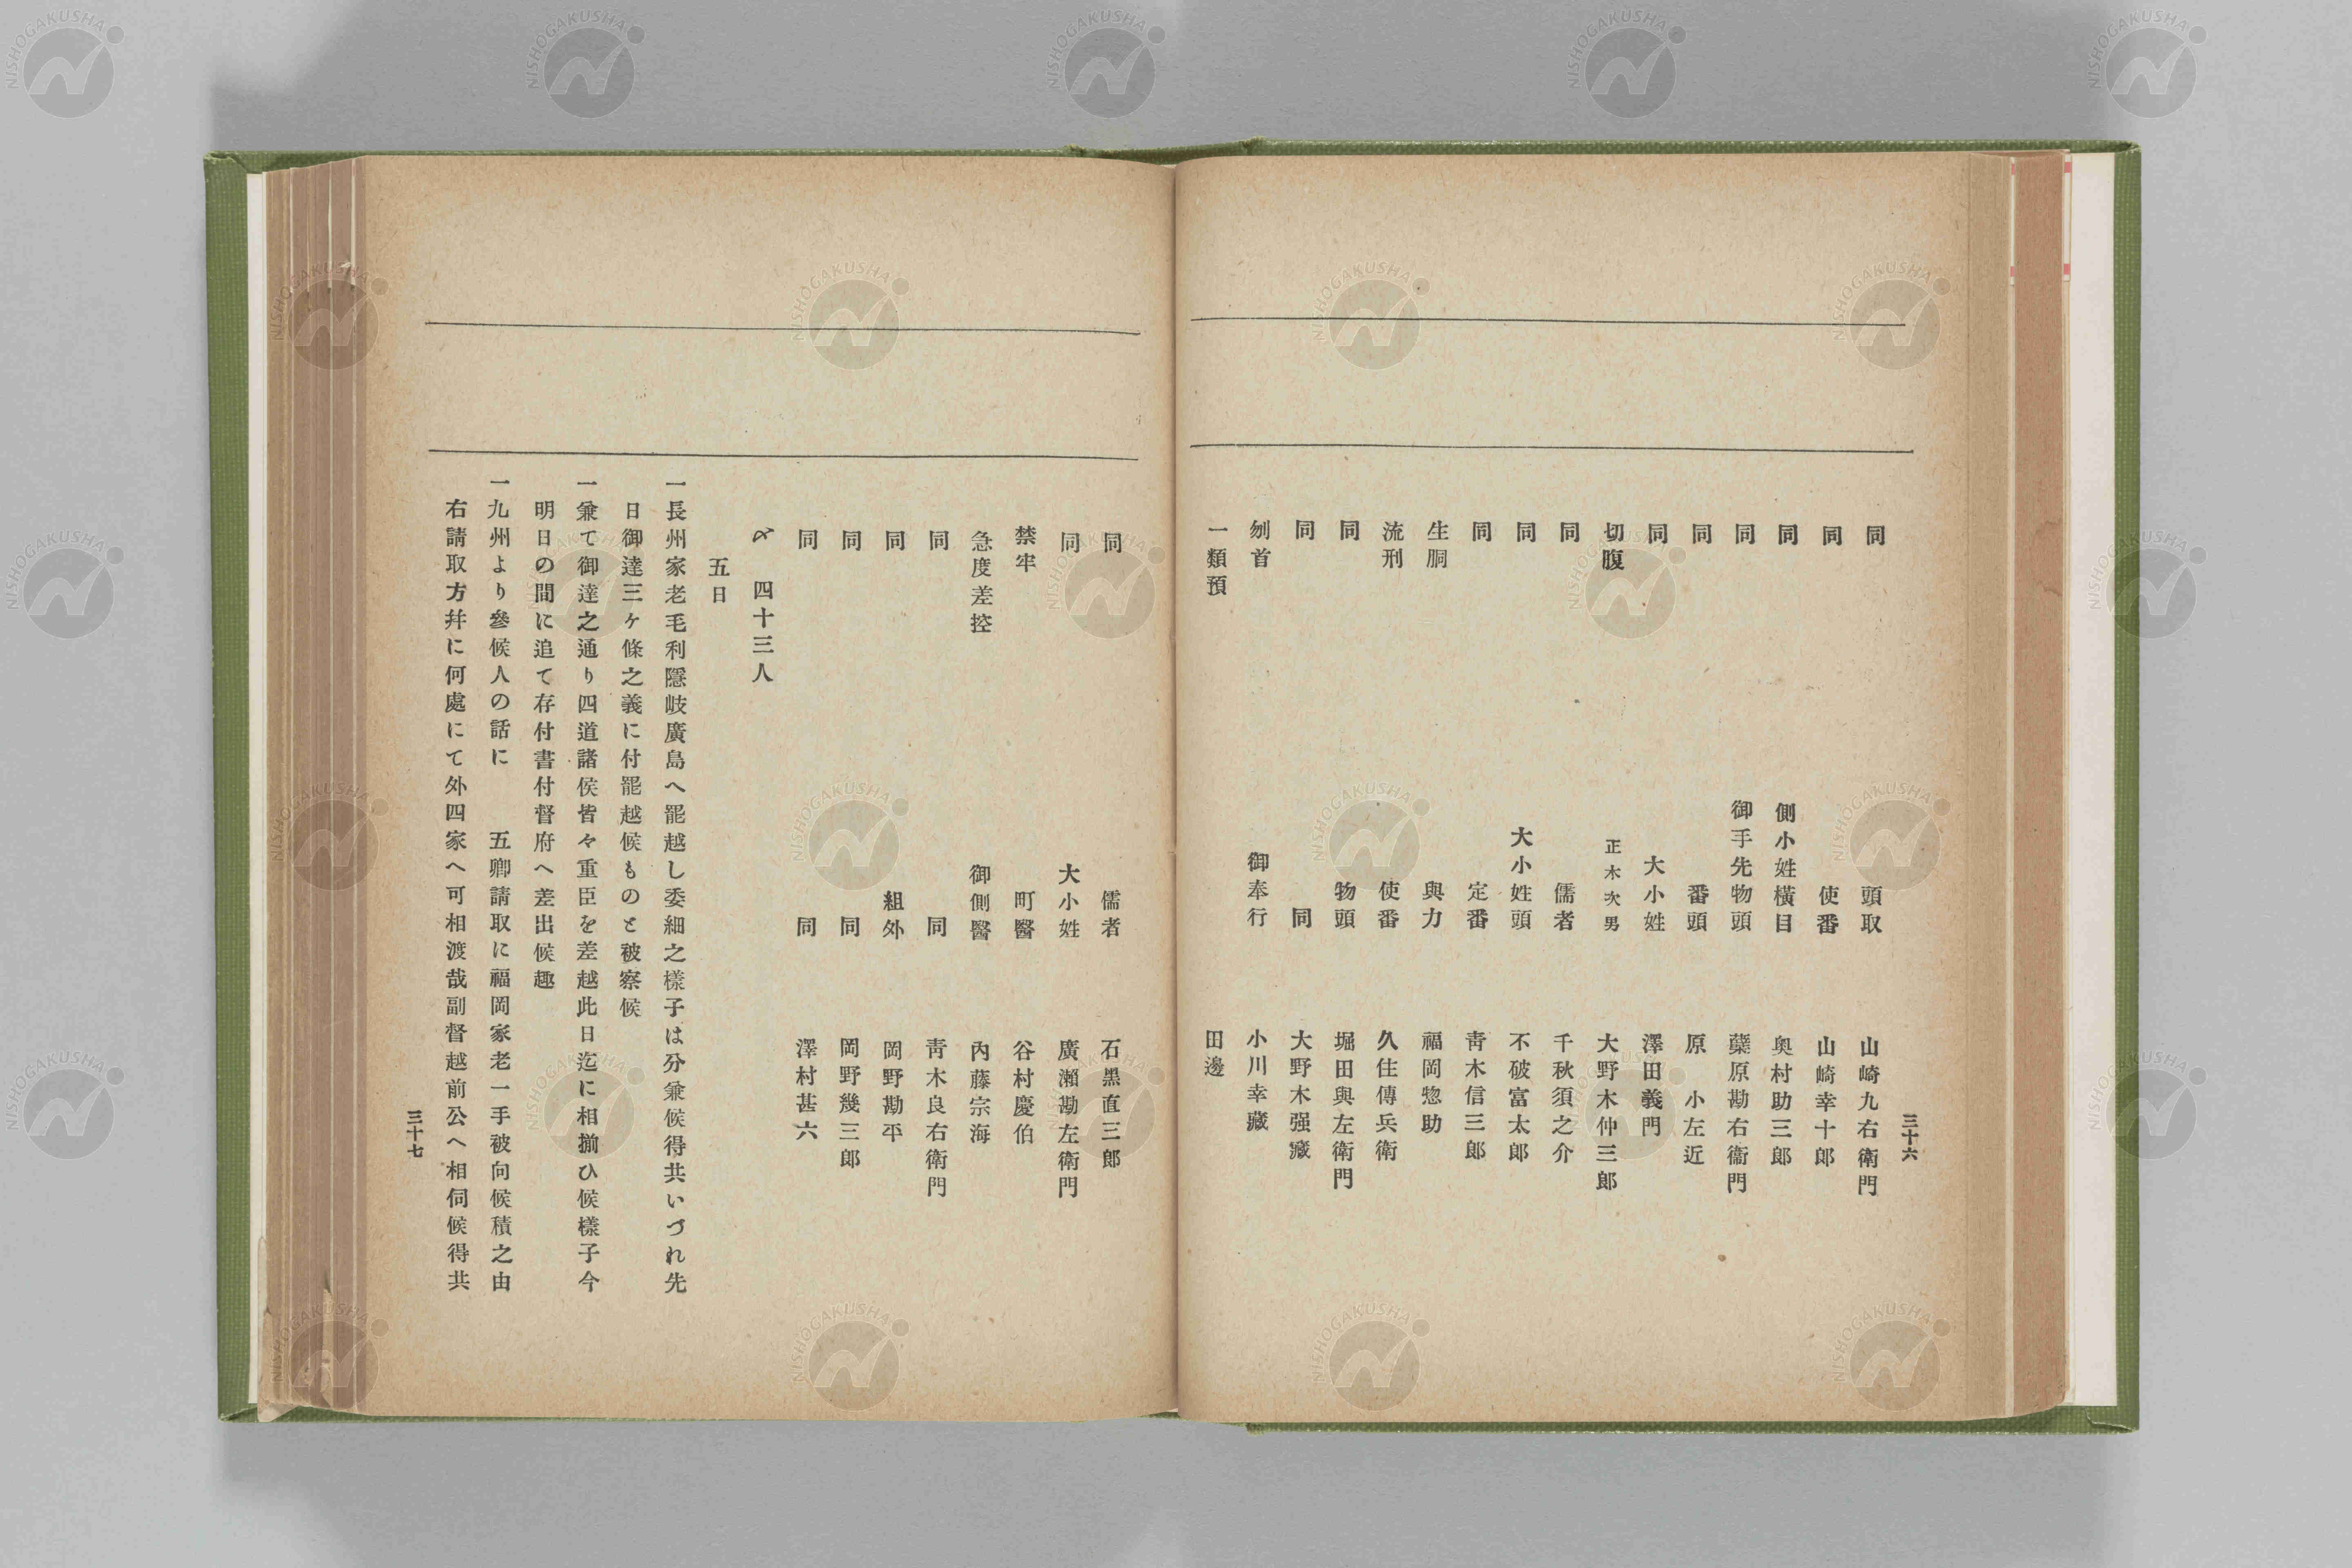 三十六
同 頭取 山崎九右衛門
同 使番 山崎幸十郎
同 側小姓横目 奥村助三郎
同 御手先物頭 蘂原勘右衞門
同 番頭 原 小左近
同 大小姓 澤田義門
切腹 正木次男 大野木仲三郎
同 儒者 千秋須之介
同 大小姓頭 不破富太郎
同 定番 靑木信三郎
生胴 與力 福岡惣助
流刑 使番 久住傳兵衛
同 物頭 堀田與左衛門
同 同 大野木强藏
刎首 御奉行 小川幸藏
一類預 田邊
同 儒者 石黒直三郎
同 大小姓 廣瀨勘左衛門
禁牢 町醫 谷村慶伯
急度差控 御側醫 內藤宗海
同 同 靑木良右衛門
同 組外 岡野勘平
同 同 岡野幾三郎
同 同 澤村甚六
〆 四十三人
五日
一長州家老毛利隱岐廣島へ罷越し委細之樣子は分兼候得共いづれ先
日御達三ケ條之義に付罷越候ものと被察候
一兼て御達之通り四道諸侯皆々重臣を差越此日迄に相揃ひ候樣子今
明日の間に追て存付書付督府へ差出候趣
一九州より參候人の話に 五卿請取に福岡家老一手被向候積之由
右請取方幷に何處にて外四家へ可相渡哉副督越前公へ相伺候得共
三十七
NISHOGAKUSHA